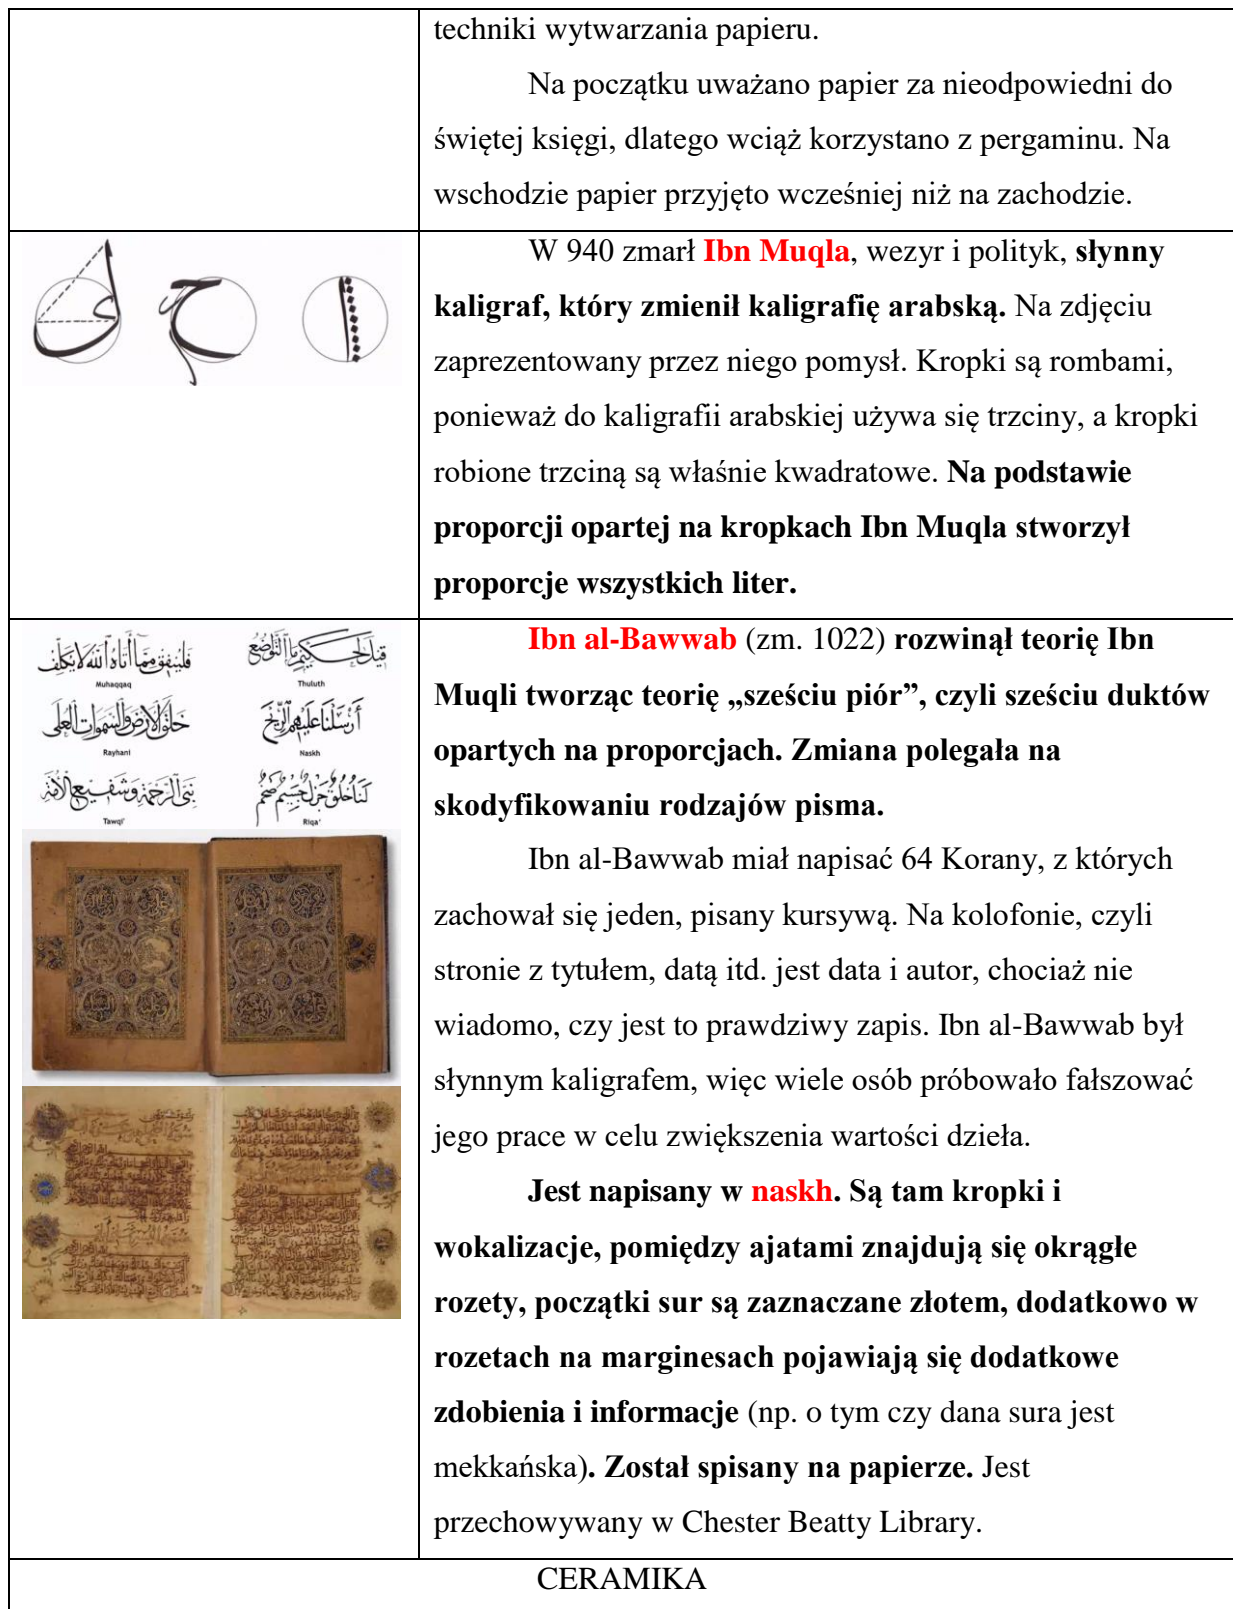 techniki wytwarzania papieru.
Na początku uważano papier za nieodpowiedni do
świętej księgi, dlatego wciąż korzystano z pergaminu. Na
wschodzie papier przyjęto wcześniej niż na zachodzie.
W 940 zmarł Ibn Muqla, wezyr i polityk, słynny
kaligraf, który zmienił kaligrafię arabską. Na zdjęciu
zaprezentowany przez niego pomysł. Kropki są rombami,
ponieważ do kaligrafii arabskiej używa się trzciny, a kropki
robione trzciną są właśnie kwadratowe. Na podstawie
proporcji opartej na kropkach Ibn Muqla stworzył
proporcje wszystkich liter.
فلينفق مما أتاه الله لا يكلف
Muhaqqaq
Thuluth
خلق الارض والسموات العلى
Rayhani
أرسلنا عليهم الريح
Naskh
نبي الرحمة وشفيع الأمة
Tawqi'
Riqa'
Ibn al-Bawwab (zm. 1022) rozwinął teorię Ibn
Muqli tworząc teorię „sześciu piór”, czyli sześciu duktów
opartych na proporcjach. Zmiana polegała na
skodyfikowaniu rodzajów pisma.
Ibn al-Bawwab miał napisać 64 Korany, z których
zachował się jeden, pisany kursywą. Na kolofonie, czyli
stronie z tytułem, datą itd. jest data i autor, chociaż nie
wiadomo, czy jest to prawdziwy zapis. Ibn al-Bawwab był
słynnym kaligrafem, więc wiele osób próbowało fałszować
jego prace w celu zwiększenia wartości dzieła.
Jest napisany w naskh. Są tam kropki i
wokalizacje, pomiędzy ajatami znajdują się okrągłe
rozety, początki sur są zaznaczane złotem, dodatkowo w
rozetach na marginesach pojawiają się dodatkowe
zdobienia i informacje (np. o tym czy dana sura jest
mekkańska). Został spisany na papierze. Jest
przechowywany w Chester Beatty Library.
CERAMIKA